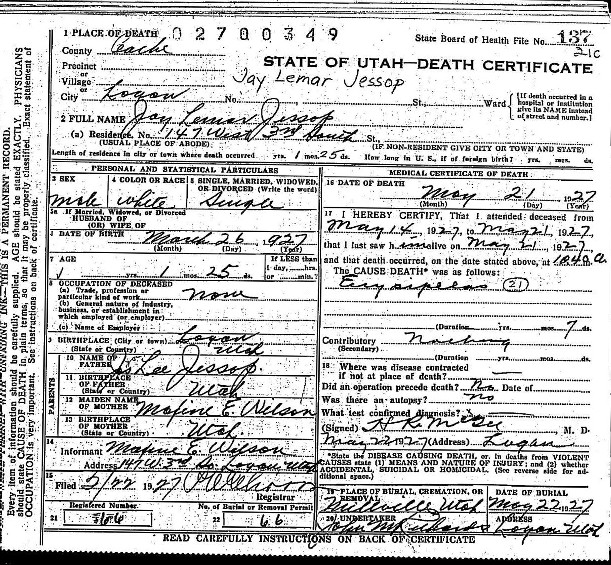 02700349
State Board of Health File No. 137
21C
1 PLACE OF DEATH
County Cache
STATE OF UTAH—DEATH CERTIFICATE
Precinct
or
Village
Jay Lemar Jessop
City Logan No. St., Ward
{If death occurred in a hospital or institution give its NAME instead of street and number.}
2 FULL NAME Jay Lemar Jessop
(a) Residence. No. 147 West 3rd South St.,
(USUAL PLACE OF ABODE) (IF NON-RESIDENT GIVE CITY OR TOWN AND STATE)
Length of residence in city or town where death occurred yrs. 1 mos. 25 ds. How long in U. S., if of foreign birth? yrs. mos. ds.
PERSONAL AND STATISTICAL PARTICULARS
3 SEX 4 COLOR OR RACE 5 SINGLE, MARRIED, WIDOWED, OR DIVORCED (Write the word)
male white Single
5a If Married, Widowed, or Divorced
HUSBAND OF
(OR) WIFE OF
6 DATE OF BIRTH March 26 1927
(Month) (Day) (Year)
7 AGE 1 25
If LESS than 1 day, hrs. or min.
8 OCCUPATION OF DECEASED
(a) Trade, profession or particular kind of work none
(b) General nature of industry, business, or establishment in which employed (or employer)
(c) Name of Employer
9 BIRTHPLACE (City or town) Logan
(State or Country) Utah
PARENTS
10 NAME OF FATHER Lee Jessop
11 BIRTHPLACE OF FATHER Utah
(State or Country)
12 MAIDEN NAME OF MOTHER Maxine E. Wilson
13 BIRTHPLACE OF MOTHER Utah
(State or Country)
14 Informant Maxine E. Wilson
Address 147 W. 3rd So. Logan Utah
15 Filed 5/22 1927
Registrar
Registered Number No. of Burial or Removal Permit
21 22 66
MEDICAL CERTIFICATE OF DEATH
16 DATE OF DEATH May 21 1927
(Month) (Day) (Year)
17 I HEREBY CERTIFY, That I attended deceased from
May 14, 1927, to May 21, 1927
that I last saw him alive on May 21, 1927
and that death occurred, on the date stated above, at 1040 a
The CAUSE DEATH* was as follows:
Erysipelas (21)
(Duration) yrs. mos. 7 ds.
Contributory
(Secondary)
(Duration) yrs. mos. ds.
18 Where was disease contracted
if not at place of death?
Did an operation precede death? No Date of
Was there an autopsy? no
What test confirmed diagnosis?
(Signed) M. D.
May 22 1927 (Address) Logan
*State the DISEASE CAUSING DEATH, or, in deaths from VIOLENT CAUSES state (1) MEANS AND NATURE OF INJURY; and (2) whether ACCIDENTAL, SUICIDAL OR HOMICIDAL. (See reverse side for additional space.)
19 PLACE OF BURIAL, CREMATION, OR REMOVAL DATE OF BURIAL
Millville Utah May 22 1927
20 UNDERTAKER ADDRESS
Logan Utah
READ CAREFULLY INSTRUCTIONS ON BACK OF CERTIFICATE
Every item of information should be carefully supplied. AGE should be stated EXACTLY. PHYSICIANS
should state CAUSE OF DEATH in plain terms, so that it may be properly classified. Exact statement of
OCCUPATION is very important. See instructions on back of certificate.